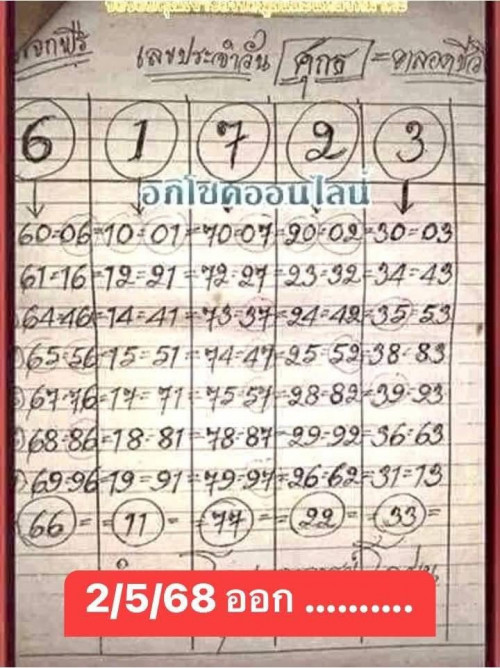 แจกฟรี เลขประจำวัน ศุกร =ตลอดชีวิ
6 1 7 2 3
อภิโชคออนไลน์
60=06=10=01=70=07=20=02=30=03
61=16=12=21=72=27=23=32=34=43
64=46=14=41=73=37=24=42=35=53
65=56=15=51=74=47=25=52=38=83
67=76=17=71=75=57=28=82=39=93
68=86=18=81=78=87=29=92=36=63
69=96=19=91=79=97=26=62=31=13
66= =11= =77= =22= =33=
2/5/68 ออก ..........